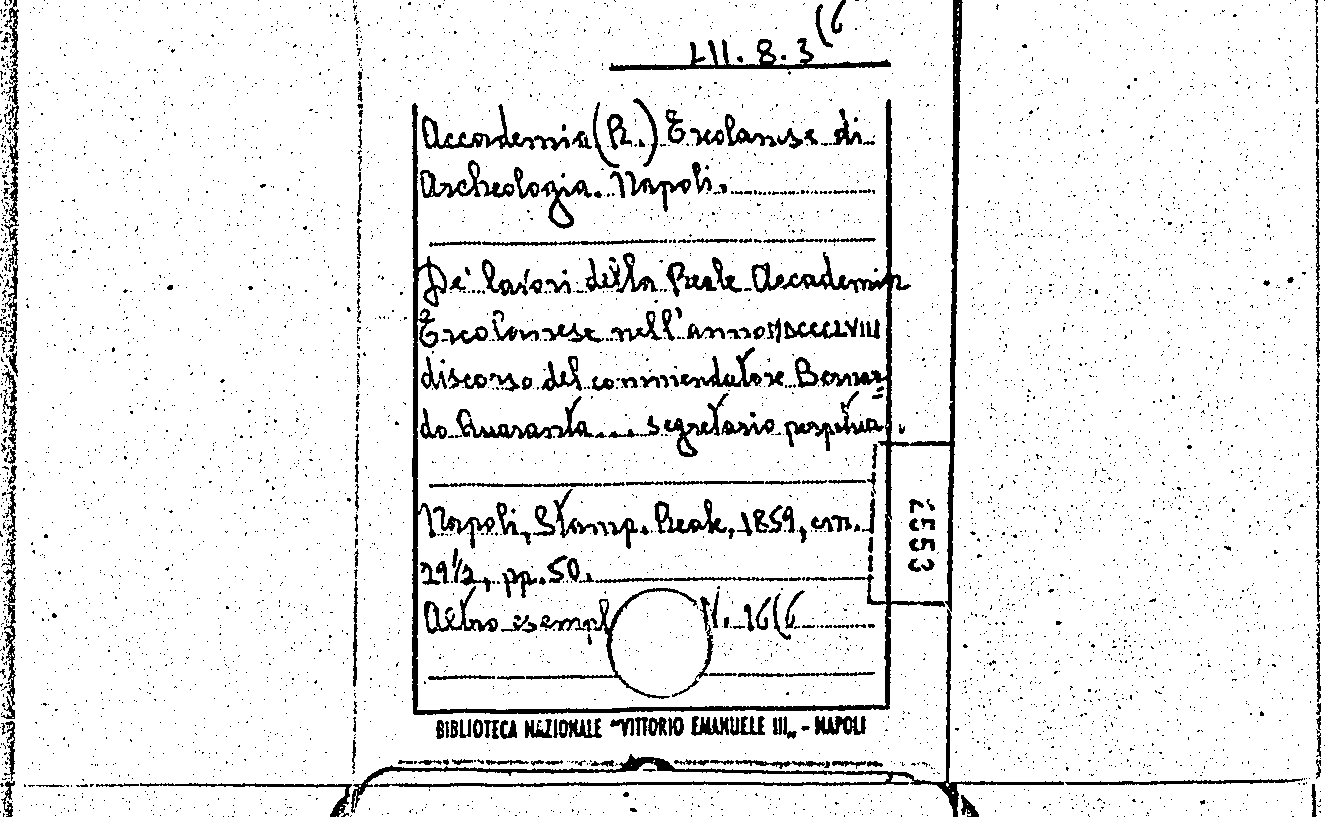 LII. 8. 3 (6
Accademia (R.) Ercolanese di
Archeologia. Napoli.
De' lavori della Reale Accademia
Ercolanese nell'anno MDCCCLVIII
discorso del commendatore Bernar=
do Quaranta... segretario perpetuo.
Napoli, Stamp. Reale, 1859, cm.
29 1/2, pp. 50.
Altro esempl . 16(6
2553
BIBLIOTECA NAZIONALE "VITTORIO EMANUELE III„ - NAPOLI